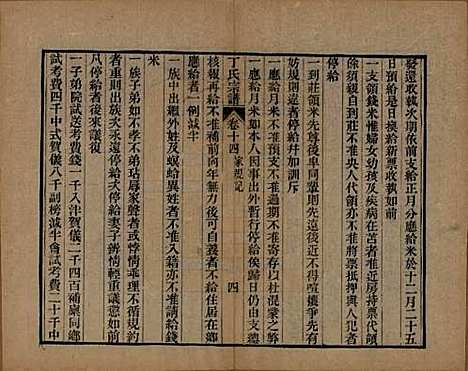 發還收執次期依前支給正月分應給米於十二月二十五
日預給是日換給新票收執如前
一支領錢米惟婦女幼孩及疾病在苫者准其託人代領
餘須親自到莊不准央人代領亦不准將票抵押與人犯者
停給
一到莊領米先遠後近卑同輩則先尊後近不得喧嚷爭先
妨規則違者停給幷加訓斥
一應給月米不准過期支領亦不准預支以杜混蒙之弊
一應給月米如本人因事出外暫行停給俟歸日仍由支總
核報再給不准補前向年無力後能自給者不
應給者一例減半
一族中出繼外姓及螟蛉異姓者不准入籍亦不准請給錢
米
一族子弟如不孝不弟玷辱家聲者或悖規逞刁
者重則出族次永遠停給次停給妻子辨情輕重議懲如有
凡停給者後來議復
一子弟院試送考費二千入泮賀儀二千四百補廩同鄉
試考費四千中式賀儀八千副榜減半會試考費二十千中
丁氏宗譜
卷十四家規記
四